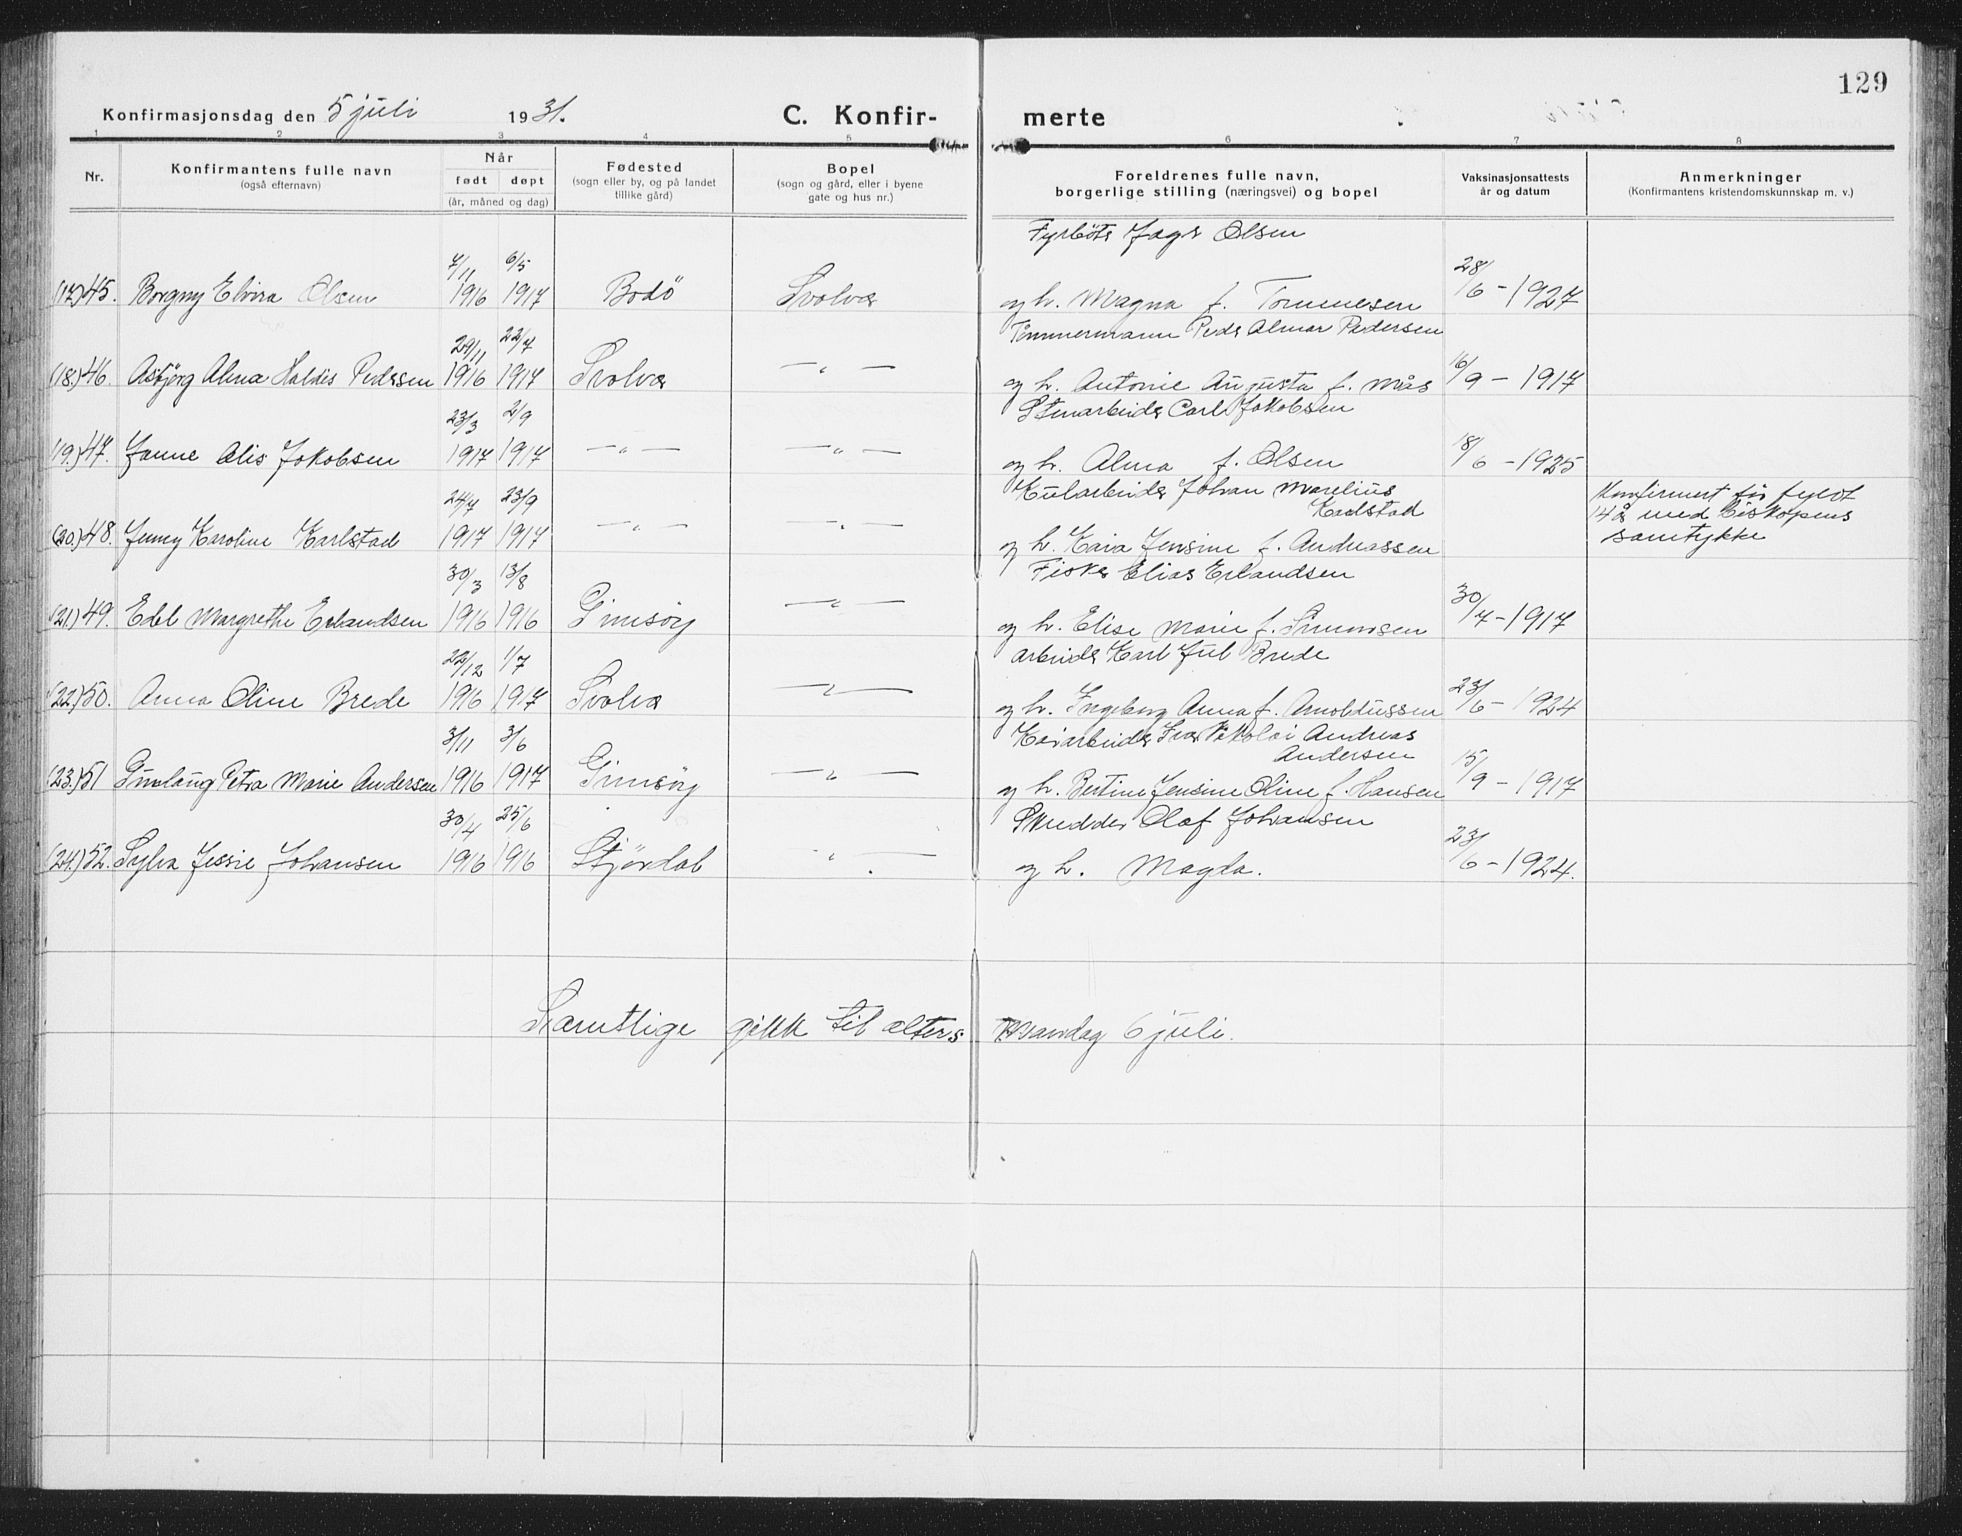 129
Konfirmasjonsdag den 5 juli 1931. C. Konfir- merte
1 2 3 4 5 6 7 8
Nr. Konfirmantens fulle navn (også efternavn) Når født døpt (år, måned og dag) Fødested (sogn eller by, og på landet tillike gård) Bopel (sogn og gård, eller i byene gate og hus nr.) Foreldrenes fulle navn, borgerlige stilling (næringsvei) og bopel Vaksinasjonsattests år og datum Anmerkninger (Konfirmantens kristendomskunnskap m. v.)
Fyrbøter Olsen
(17) 45. Borgny Elvira Olsen 7/11 1916 6/5 1917 Bodö Svolvær og h. Magna f. Tønnesen 28/6 - 1927
Tömmermann Peder Almar Pedersen
(18.) 46. Asbjörg Alma Haldis Pedersen 29/11 1916 22/7 1917 Svolvær — " — og h. Antonie Augusta f. Mås 16/9 - 1917
Stenarbeider Carl Jakobsen
(19.) 47. Janne Alis Jakobsen 23/3 1917 2/9 1917 — " — — " — og h. Alma f. Olsen 18/6 - 1925
Kularbeider Johan Marelius
Karlstad
(20.) 48. Jenny Karoline Karlstad 24/7 1917 23/9 1917 — " — — " — og h. Kaia Jensine f. Andreassen Konfirmert før fyldt
14 år med biskopens
samtykke
Fisker Elias Erlandsen
(21.) 49. Edel Margrethe Erlandsen 30/3 1916 13/8 1916 Gimsöy — " — og h. Elise Marie f. Simonsen 30/7 - 1917
arbeider Karl Jul Brede
(22.) 50. Anna Oline Brede 22/12 1916 1/7 1917 Svolvær — " — og h. Ingeborg Anna f. Arnoldussen 23/6 - 1924
Kaiarbeider Ivar Nikolai Andreas
Andersen
(23.) 51 Gunlaug Petra Marie Andersen 3/11 1916 3/6 1917 Gimsöy — " — og h. Bertine Jensine Oline f. Hansen 15/9 - 1917
Skredder Olaf Johansen
(24.) 52. Sylva Jessie Johansen 30/4 1916 25/6 1916 Stjördal " — og h. Magda. 23/6 - 1924.
Samtlige gikk til alters Mandag 6 juli.